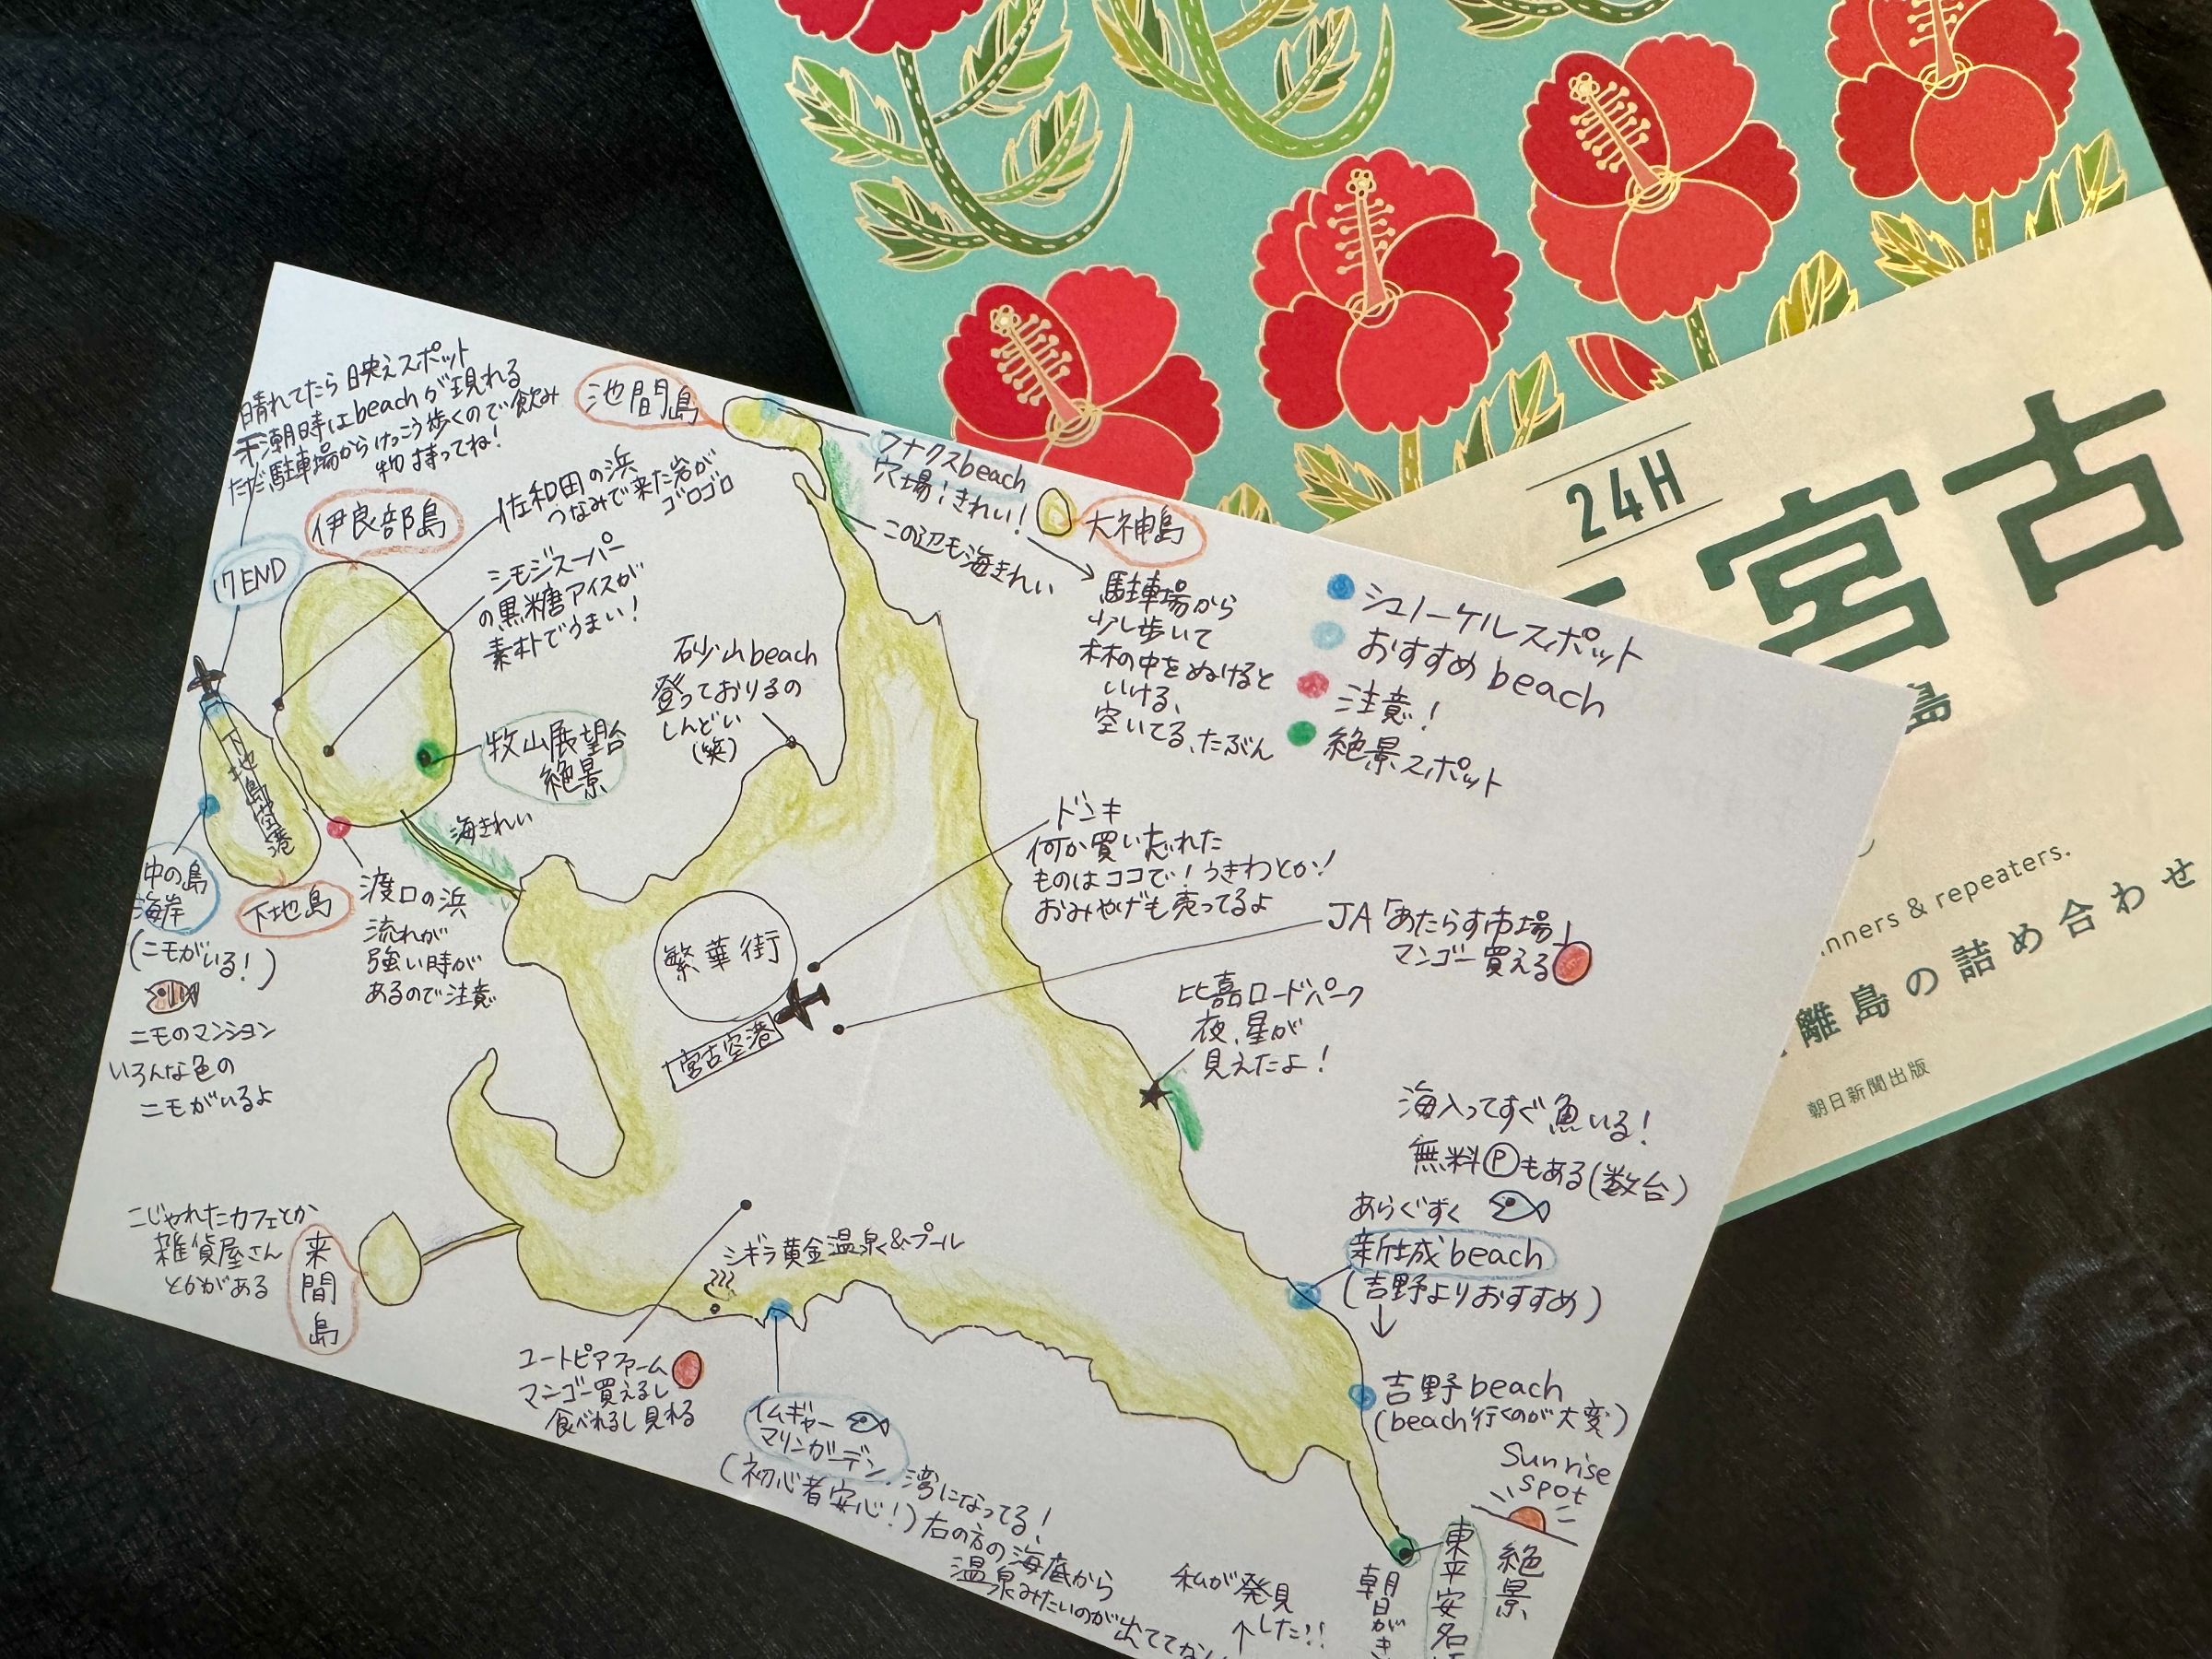 晴れてたら映えスポット
干潮時はbeachが現れる
ただ駐車場からけっこう歩くので飲み
物持ってね!
17END
伊良部島
佐和田の浜
つなみで来た岩が
ゴロゴロ
シモジスーパー
の黒糖アイスが
素朴でうまい!
牧山展望台
絶景
海きれい
下地島空港
中の島
海岸
(ニモがいる!)
ニモのマンション
いろんな色の
ニモがいるよ
下地島
渡口の浜
流れが
強い時が
あるので注意
池間島
フナクスbeach
穴場!きれい!
この辺も海きれい
大神島
駐車場から
少し歩いて
林の中をぬけると
いける、
空いてる、たぶん
シュノーケルスポット
おすすめbeach
注意!
絶景スポット
砂山beach
登っておりるの
しんどい
(笑)
ドンキ
何か買い忘れた
ものはココで!うきわとか!
おみやげも売ってるよ
JA「あたらす市場」
マンゴー買える
繁華街
宮古空港
比嘉ロードパーク
夜、星が
見えたよ!
海入ってすぐ魚いる!
無料Ⓟもある(数台)
あらぐすく
新城beach
(吉野よりおすすめ)
↓
吉野beach
(beach行くのが大変)
Sunrise
spot
絶景
東平安名
朝日がき
来間島
こじゃれたカフェとか
雑貨屋さん
とかがある
シギラ黄金温泉&プール
ユートピアファーム
マンゴー買えるし
食べれるし見れる
イムギャー
マリンガーデン
(初心者安心!)
湾になってる!
右の方の海底から
温泉みたいのが出てて
私が発見
↑した!!
24H
宮古
島
nners & repeaters.
離島の詰め合わせ
朝日新聞出版